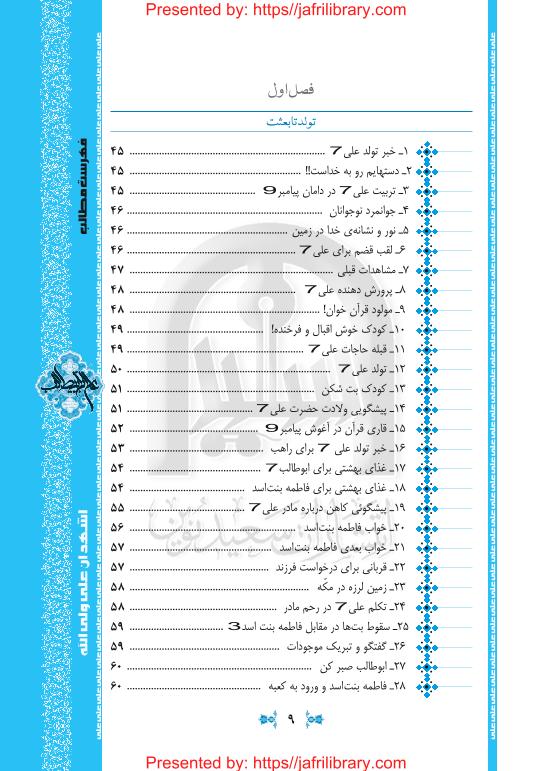 Presented by: https//jafrilibrary.com
فصل اول
تولد تا بعثت
۱ـ خبر تولد علی7 ........ ۴۵
۲ـ دستهایم رو به خداست!! ........ ۴۵
۳ـ تربیت علی7 در دامان پیامبر9 ........ ۴۵
۴ـ جوانمرد نوجوانان ........ ۴۶
۵ـ نور و نشانه‌ی خدا در زمین ........ ۴۶
۶ـ لقب قضم برای علی7 ........ ۴۶
۷ـ مشاهدات قبلی ........ ۴۷
۸ـ پرورش دهنده علی7 ........ ۴۸
۹ـ مولود قرآن خوان! ........ ۴۸
۱۰ـ کودک خوش اقبال و فرخنده! ........ ۴۹
۱۱ـ قبله حاجات علی7 ........ ۴۹
۱۲ـ تولد علی7 ........ ۵۰
۱۳ـ کودک بت شکن ........ ۵۱
۱۴ـ پیشگویی ولادت حضرت علی7 ........ ۵۱
۱۵ـ قاری قرآن در آغوش پیامبر9 ........ ۵۲
۱۶ـ خبر تولد علی 7 برای راهب ........ ۵۳
۱۷ـ غذای بهشتی برای ابوطالب7 ........ ۵۴
۱۸ـ غذای بهشتی برای فاطمه بنت‌اسد ........ ۵۴
۱۹ـ پیشگوئی کاهن درباره مادر علی7 ........ ۵۵
۲۰ـ خواب فاطمه بنت‌اسد ........ ۵۶
۲۱ـ خواب بعدی فاطمه بنت‌اسد ........ ۵۷
۲۲ـ قربانی برای درخواست فرزند ........ ۵۷
۲۳ـ زمین لرزه در مکّه ........ ۵۸
۲۴ـ تکلم علی7 در رحم مادر ........ ۵۸
۲۵ـ سقوط بت‌ها در مقابل فاطمه بنت اسد3 ........ ۵۹
۲۶ـ گفتگو و تبریک موجودات ........ ۵۹
۲۷ـ ابوطالب صبر کن ........ ۶۰
۲۸ـ فاطمه بنت‌اسد و ورود به کعبه ........ ۶۰
۹
فهرست مطالب
اشهد ان علی ولی الله
Presented by: https//jafrilibrary.com